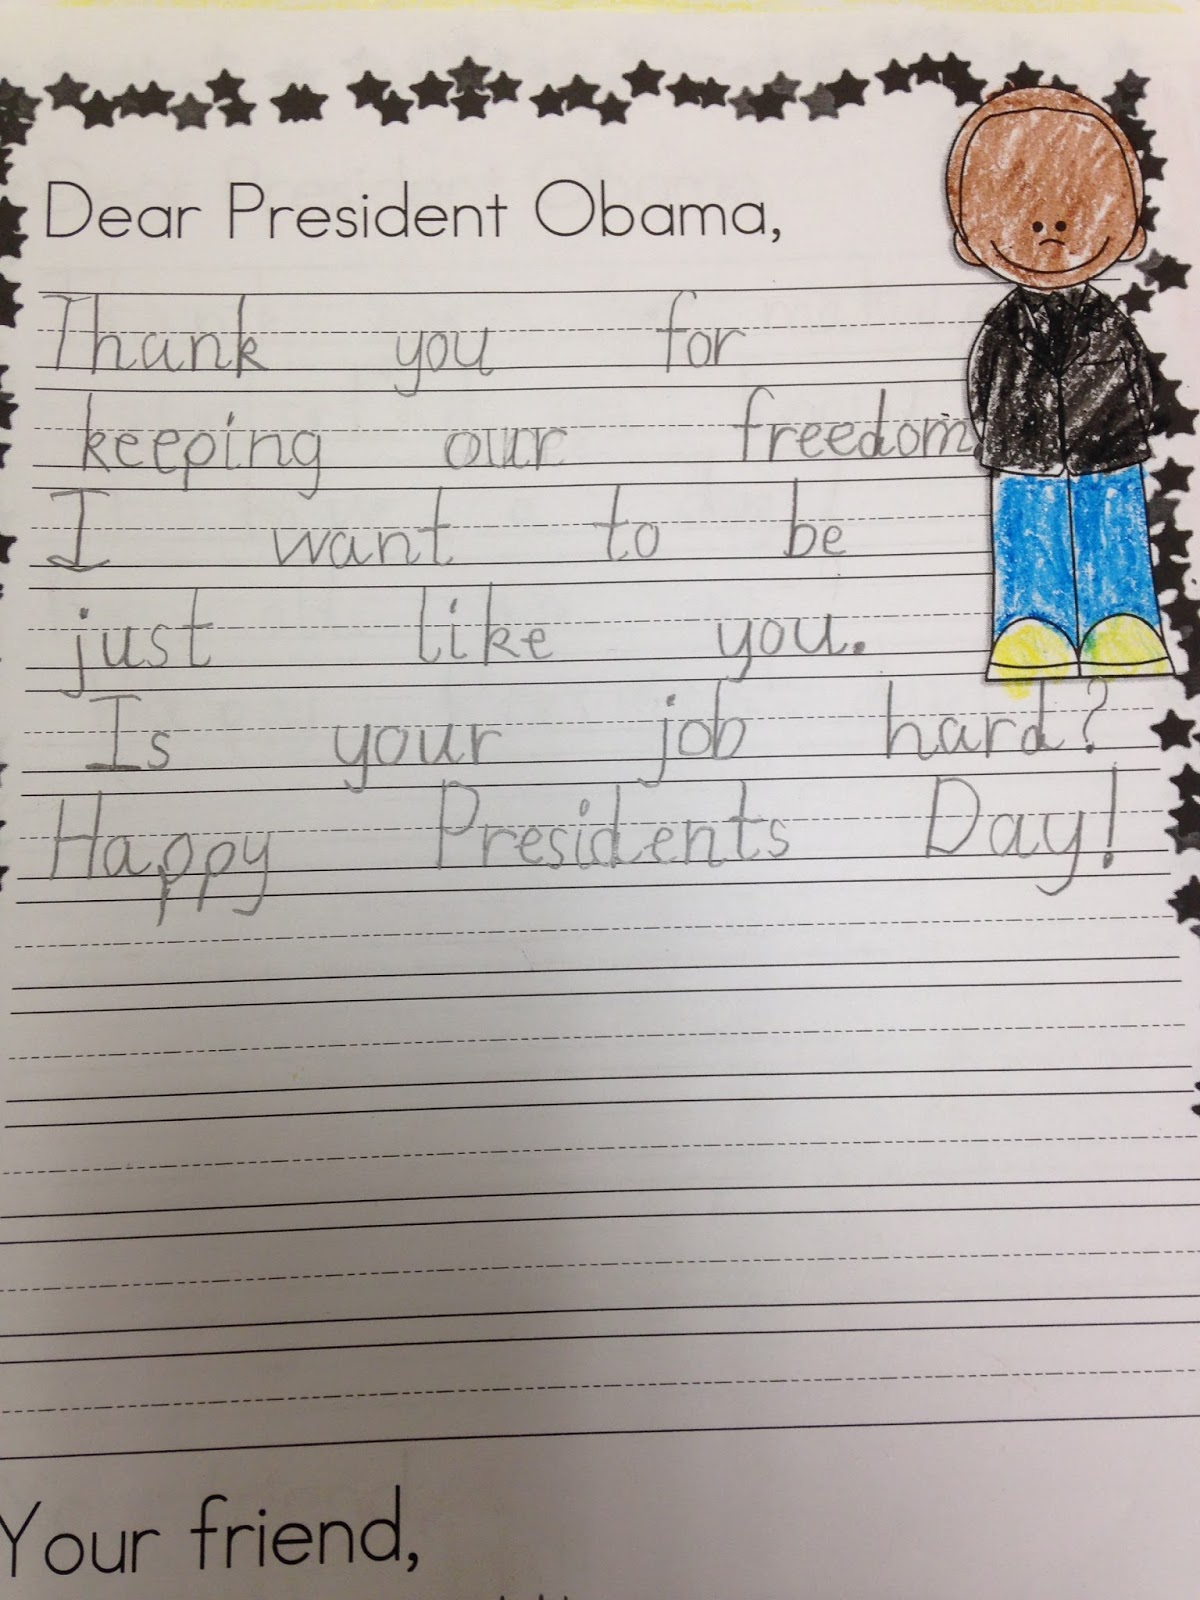 Dear President Obama,
Thank you for
keeping our freedom
I want to be
just like you.
Is your job hard?
Happy Presidents Day!
Your friend,